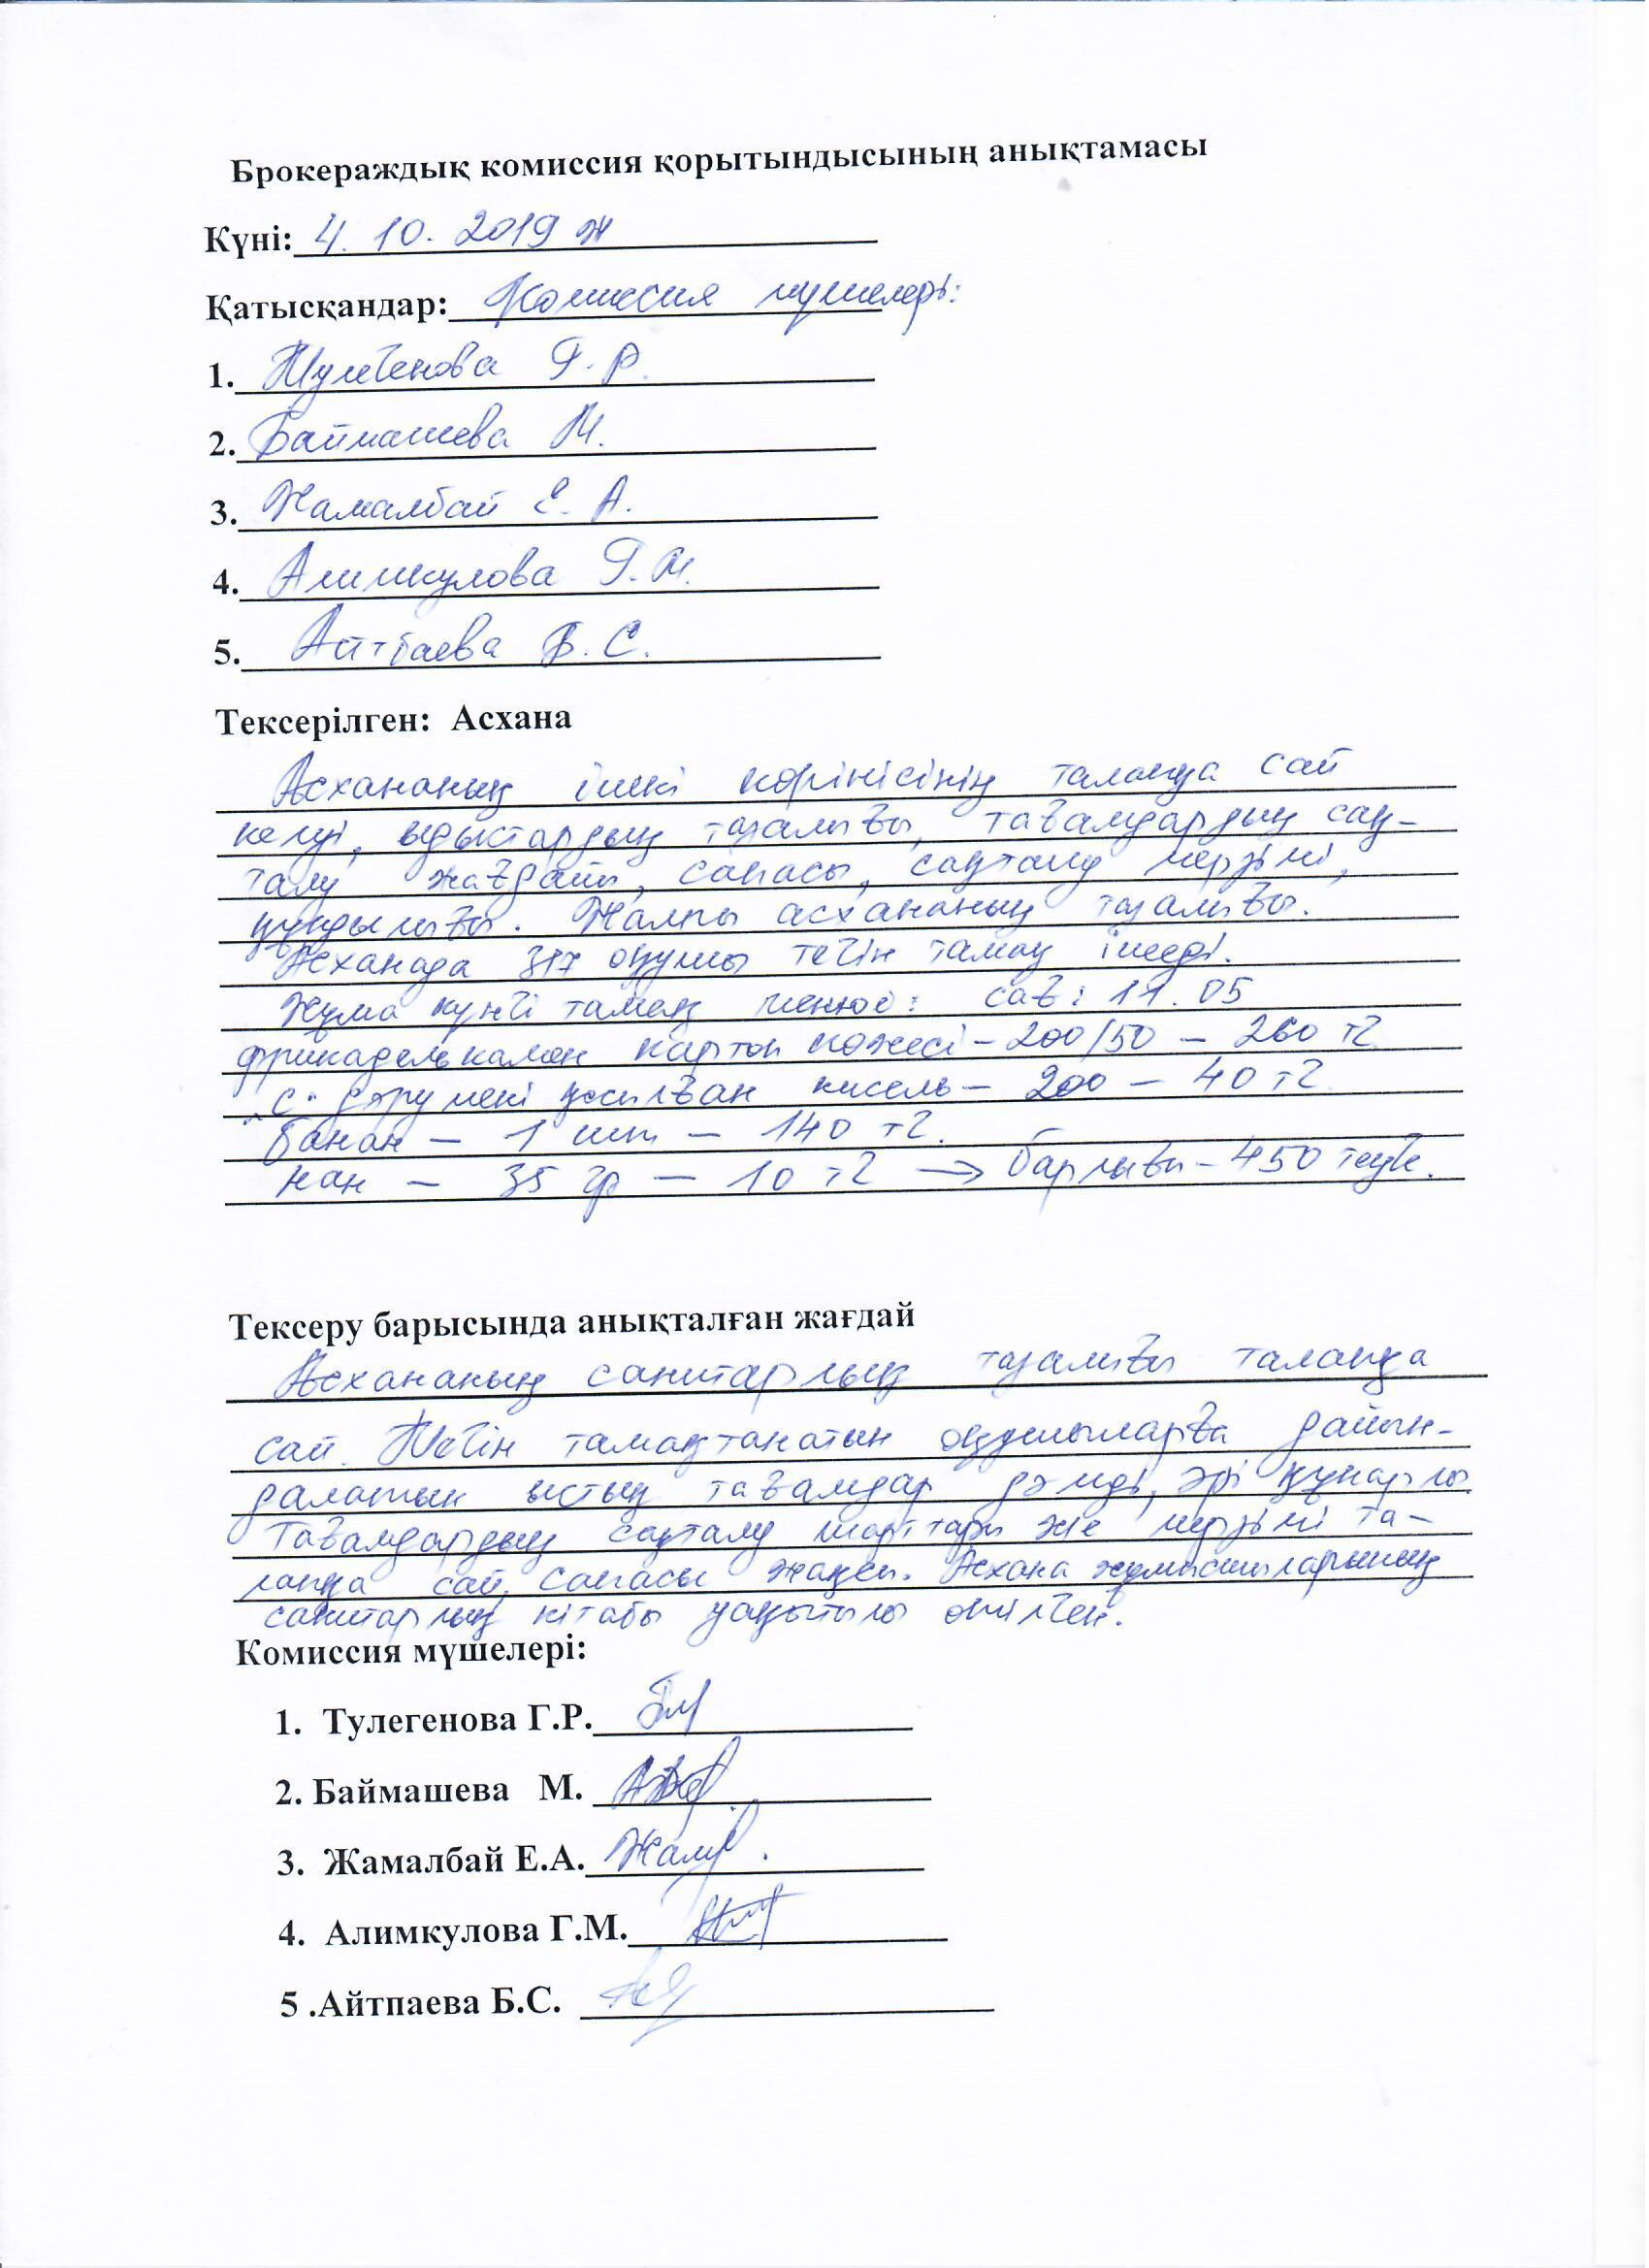 Брокераждық комиссия қорытындысының анықтамасы
Күні: 4. 10. 2019 ж
Қатысқандар: Комиссия мүшелері:
1. Тулегенова Г. Р.
2. Баймашева М.
3. Жамалбай Е. А.
4. Алимкулова Г. М.
5. Айтбаева Б. С.
Тексерілген: Асхана
Асхананың ішкі көрінісінің талапқа сай
келуі, ыдыстардың тазалығы, тағамдардың сақ-
талу жағдайы, сапасы, сақталу мерзімі,
құндылығы. Жалпы асхананың тазалығы.
Асханада 317 оқушы тегін тамақ ішеді.
Жұма күнгі тамақ менюі: сағ: 11.05
фрикаделькамен картоп көжесі - 200/50 - 260 тг
"С" дәрумені қосылған кисель - 200 - 40 тг
банан - 1 шт - 140 тг.
нан - 35 гр - 10 тг → барлығы - 450 теңге.
Тексеру барысында анықталған жағдай
Асхананың санитарлық тазалығы талапқа
сай. Тегін тамақтанатын оқушыларға дайын-
далатын ыстық тағамдар дәмді, әрі құнарлы.
Тағамдардың сақталу шарттары және мерзімі та-
лапқа сай, сапасы жақсы. Асхана жұмысшыларының
санитарлық кітабы уақытылы өтілген.
Комиссия мүшелері:
1. Тулегенова Г.Р.
2. Баймашева М.
3. Жамалбай Е.А. Жам
4. Алимкулова Г.М.
5 .Айтпаева Б.С.